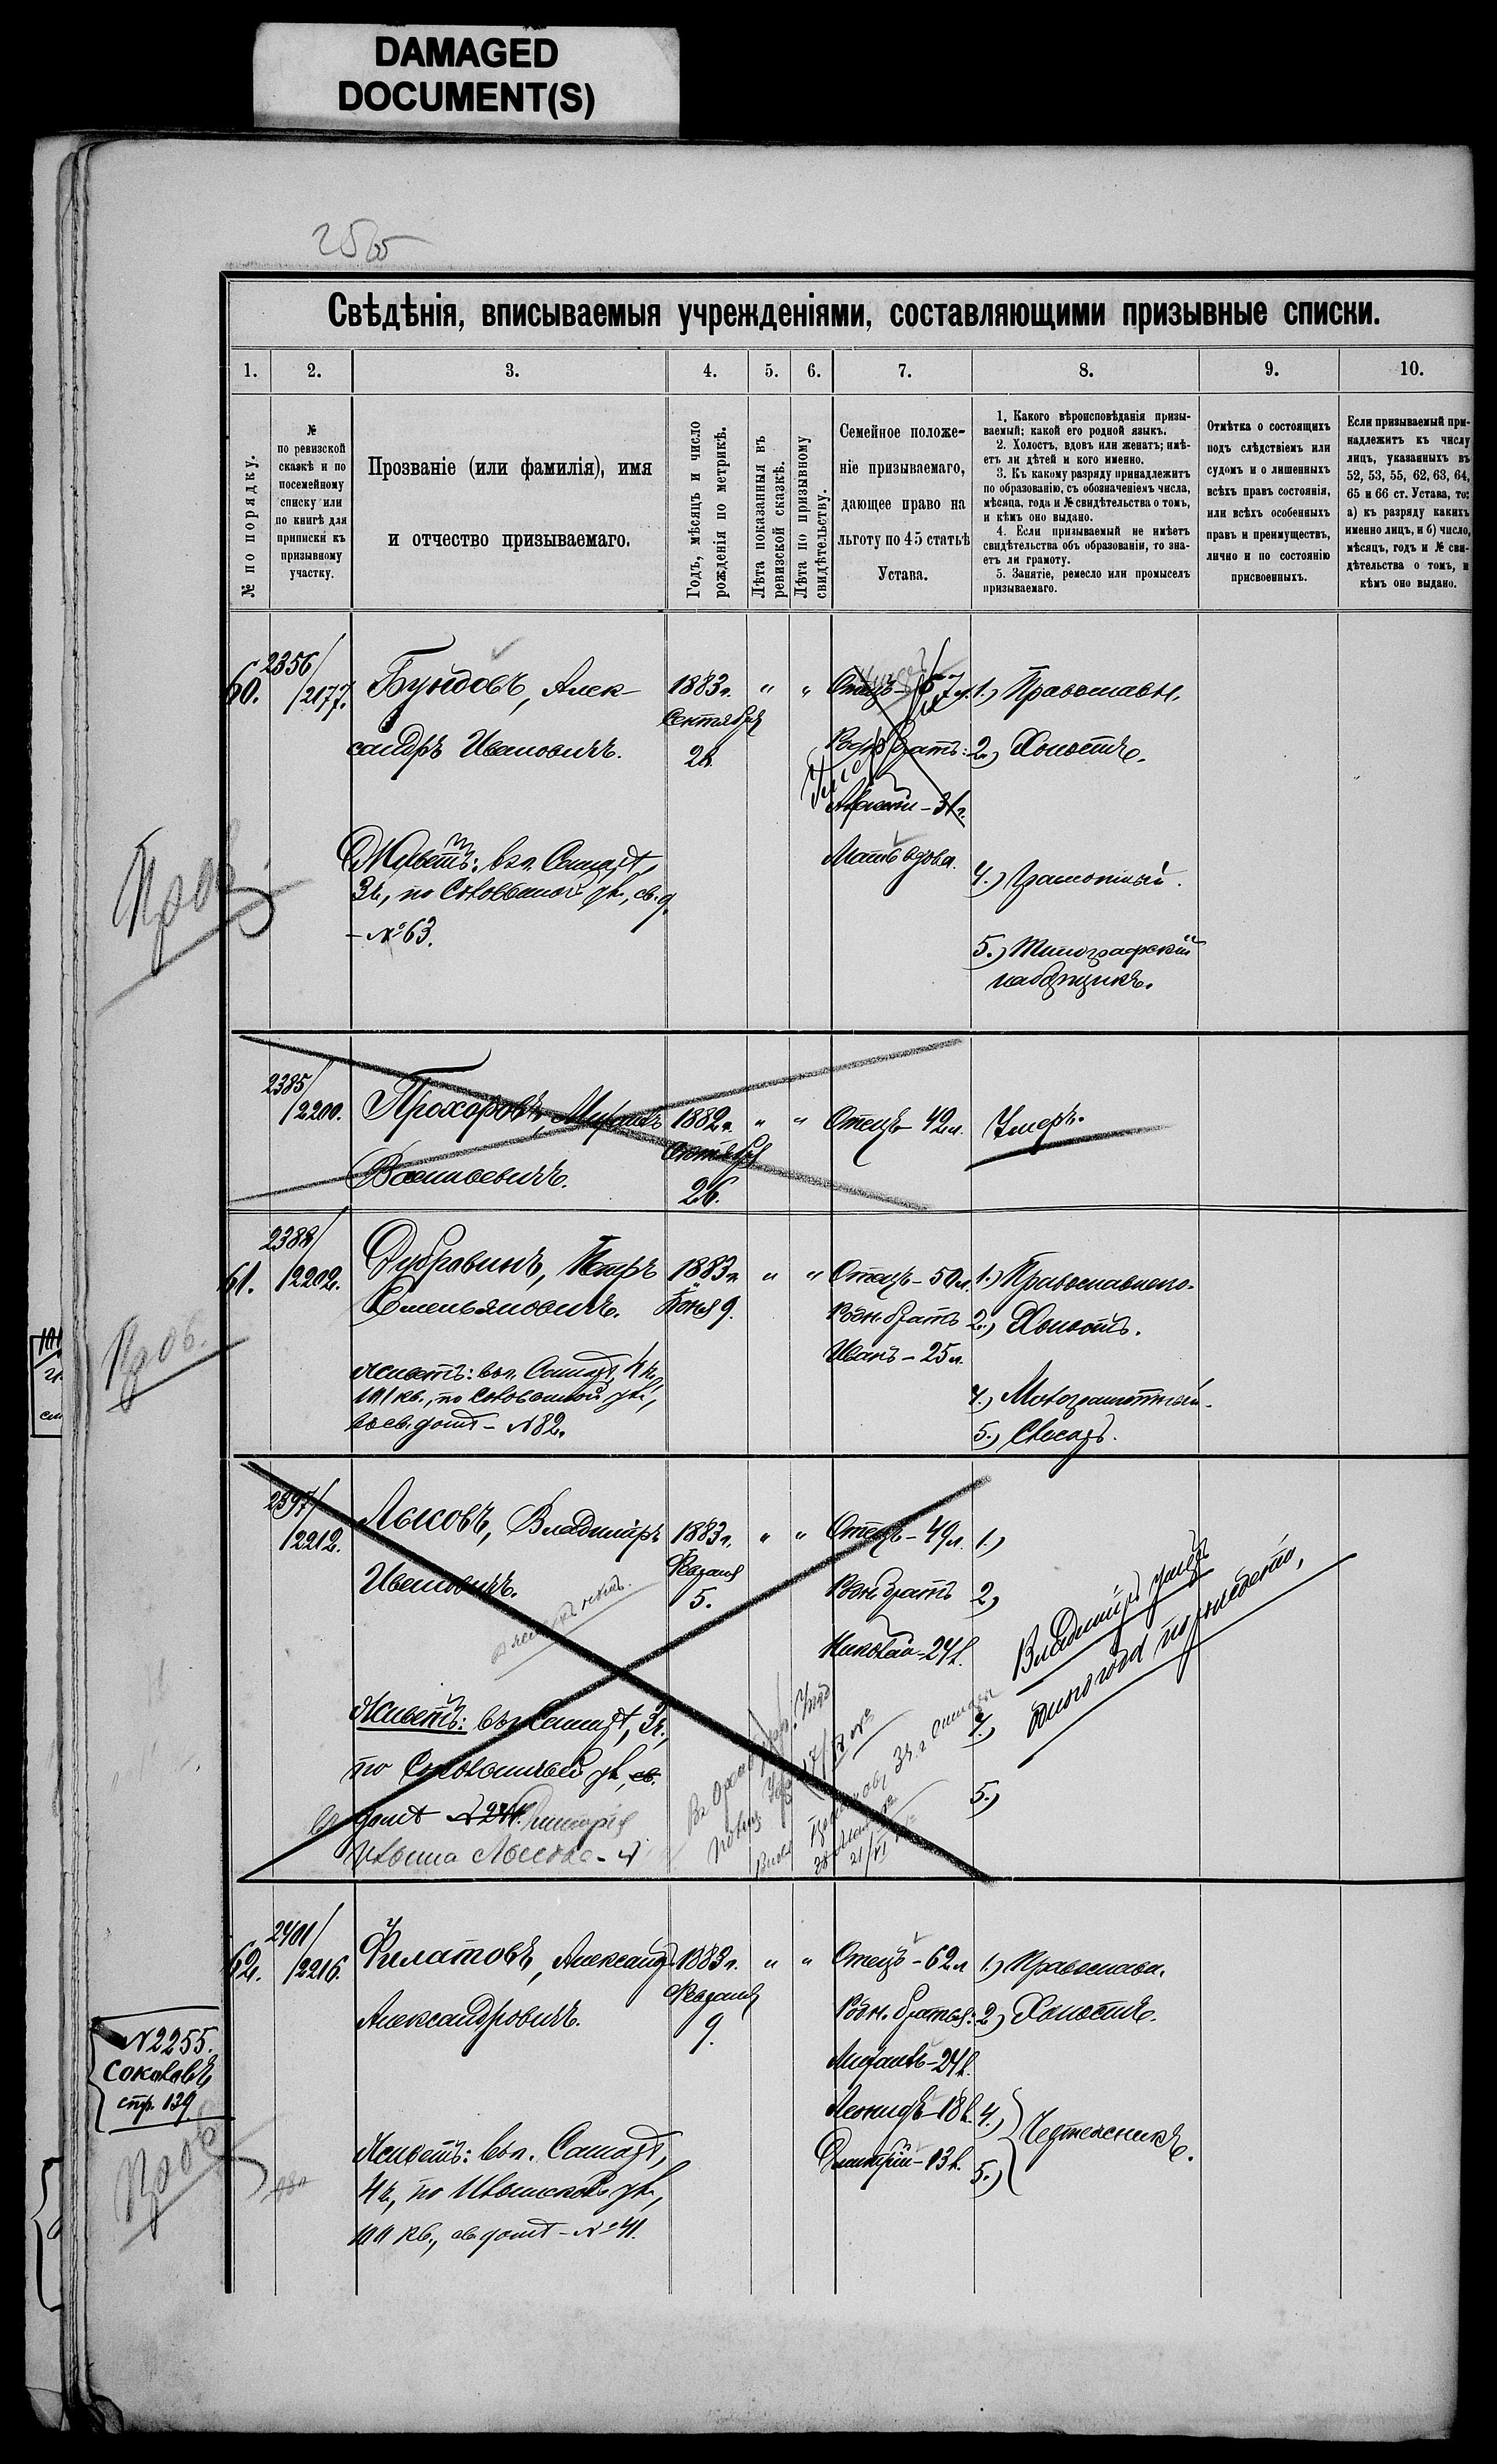 DAMAGED
DOCUMENT(S)
Свѣдѣнія, вписываемыя учрежденіями, составляющими призывные списки.
1. 2. 3. 4. 5. 6. 7. 8. 9. 10.
№ по порядку.
№
по ревизской
сказкѣ и по
посемейному
списку или
по книгѣ для
приписки къ
призывному
участку.
Прозваніе (или фамилія), имя
и отчество призываемаго.
Годъ, мѣсяцъ и число
рожденія по метрикѣ.
Лѣта показанныя въ
ревизской сказкѣ.
Лѣта по призывному
свидѣтельству.
Семейное положе-
ніе призываемаго,
дающее право на
льготу по 45 статьѣ
Устава.
1. Какого вѣроисповѣданія призы-
ваемый; какой его родной языкъ.
2. Холостъ, вдовъ или женатъ; имѣ-
етъ ли дѣтей и кого именно.
3. Къ какому разряду принадлежитъ
по образованію, съ обозначеніемъ числа,
мѣсяца, года и № свидѣтельства о томъ,
и кѣмъ оно выдано.
4. Если призываемый не имѣетъ
свидѣтельства объ образованіи, то зна-
етъ ли грамоту.
5. Занятіе, ремесло или промыселъ
призываемаго.
Отмѣтка о состоящихъ
подъ слѣдствіемъ или
судомъ и о лишенныхъ
всѣхъ правъ состоянія,
или всѣхъ особенныхъ
правъ и преимуществъ,
лично и по состоянію
присвоенныхъ.
Если призываемый при-
надлежитъ къ числу
лицъ, указанныхъ въ
52, 53, 55, 62, 63, 64,
65 и 66 ст. Устава, то:
а) къ разряду какихъ
именно лицъ, и б) число,
мѣсяцъ, годъ и № сви-
дѣтельства о томъ, и
кѣмъ оно выдано.
60. 2356/2177. Бундовъ, Алек-
сандръ Ивановичъ.
1883 г.
Сентября
" "
Отецъ
Родн. братъ:
31 г.
Умеръ
Мать вдова.
1.) Православн.
2.) Холостъ.
4.) Грамотный.
5.) Типографскій
наборщикъ.
Живетъ: въ г. Самарѣ,
3 ч., по Соколовской ул., св. д.
- № 63.
2385/2200. Прохоровъ, Михаилъ
Васильевичъ.
1882 г.
Октября
26.
" "
Отецъ 42 л.
Умеръ.
61. 2388/2202. Дубровинъ, Петръ
Емельяновичъ.
1883 г.
Іюня 9.
" "
Отецъ - 50 л.
Родн. братъ
Иванъ - 25 л.
1.) Православнаго.
2.) Холостъ.
4.) Малограмотный.
5.) Слесарь.
Живетъ: въ г. Самарѣ, 4 ч.,
101 кв., по Соколовской ул.,
въ св. домѣ - № 82.
2397/2212. Лысовъ, Владиміръ
Ивановичъ.
1883 г.
Февраля
5.
" "
Отецъ - 49 л.
Родн. братъ
Николай - 24 л.
1.)
2.)
4.)
5.)
Владиміръ умеръ
одного года по
Живетъ: въ г. Самарѣ, 3 ч.,
по Соколовской ул., св.
домѣ № Дмитрія
Лысова - №
62. 2401/2216. Филатовъ, Александръ
Александровичъ.
1883 г.
Февраля
9.
" "
Отецъ - 62 л.
Родн. братья:
Михаилъ - 24 л.
Леонидъ - 18 л.
Дмитрій - 13 л.
1.) Православн.
2.) Холостъ.
4.)
5.)
Чертежникъ.
Живетъ: въ г. Самарѣ,
4 ч., по Ильинской ул.,
101 кв., св. домѣ - № 41.
Пров.
Пров.
№ 2255.
Соколовъ
стр. 139
Пров.